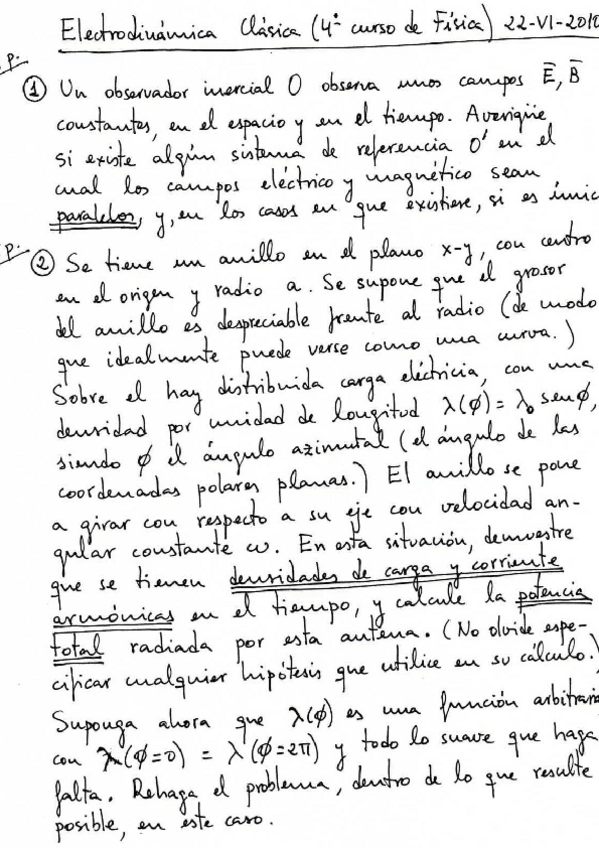 Electrodinámica Clásica (4º curso de Física) 22-VI-2010
P.
① Un observador inercial O observa unos campos E̅, B̅
constantes, en el espacio y en el tiempo. Averigüe
si existe algún sistema de referencia O' en el
cual los campos eléctrico y magnético sean
paralelos, y, en los casos en que existiese, si es únic
P.
② Se tiene un anillo en el plano x-y, con centro
en el origen y radio a. Se supone que el grosor
del anillo es despreciable frente al radio (de modo
que idealmente puede verse como una curva.)
Sobre el hay distribuida carga eléctricia, con una
densidad por unidad de longitud λ(ϕ) = λ₀ senϕ,
siendo ϕ el ángulo azimutal (el ángulo de las
coordenadas polares planas.) El anillo se pone
a girar con respecto a su eje con velocidad an-
gular constante ω. En esta situación, demuestre
que se tienen densidades de carga y corriente
armónicas en el tiempo, y calcule la potencia
total radiada por esta antena. (No olvide espe-
cificar cualquier hipótesis que utilice en su cálculo.)
Suponga ahora que λ(ϕ) es una función arbitraria
con (ϕ=0) = λ(ϕ=2π) y todo lo suave que haga
falta. Rehaga el problema, dentro de lo que resulte
posible, en este caso.